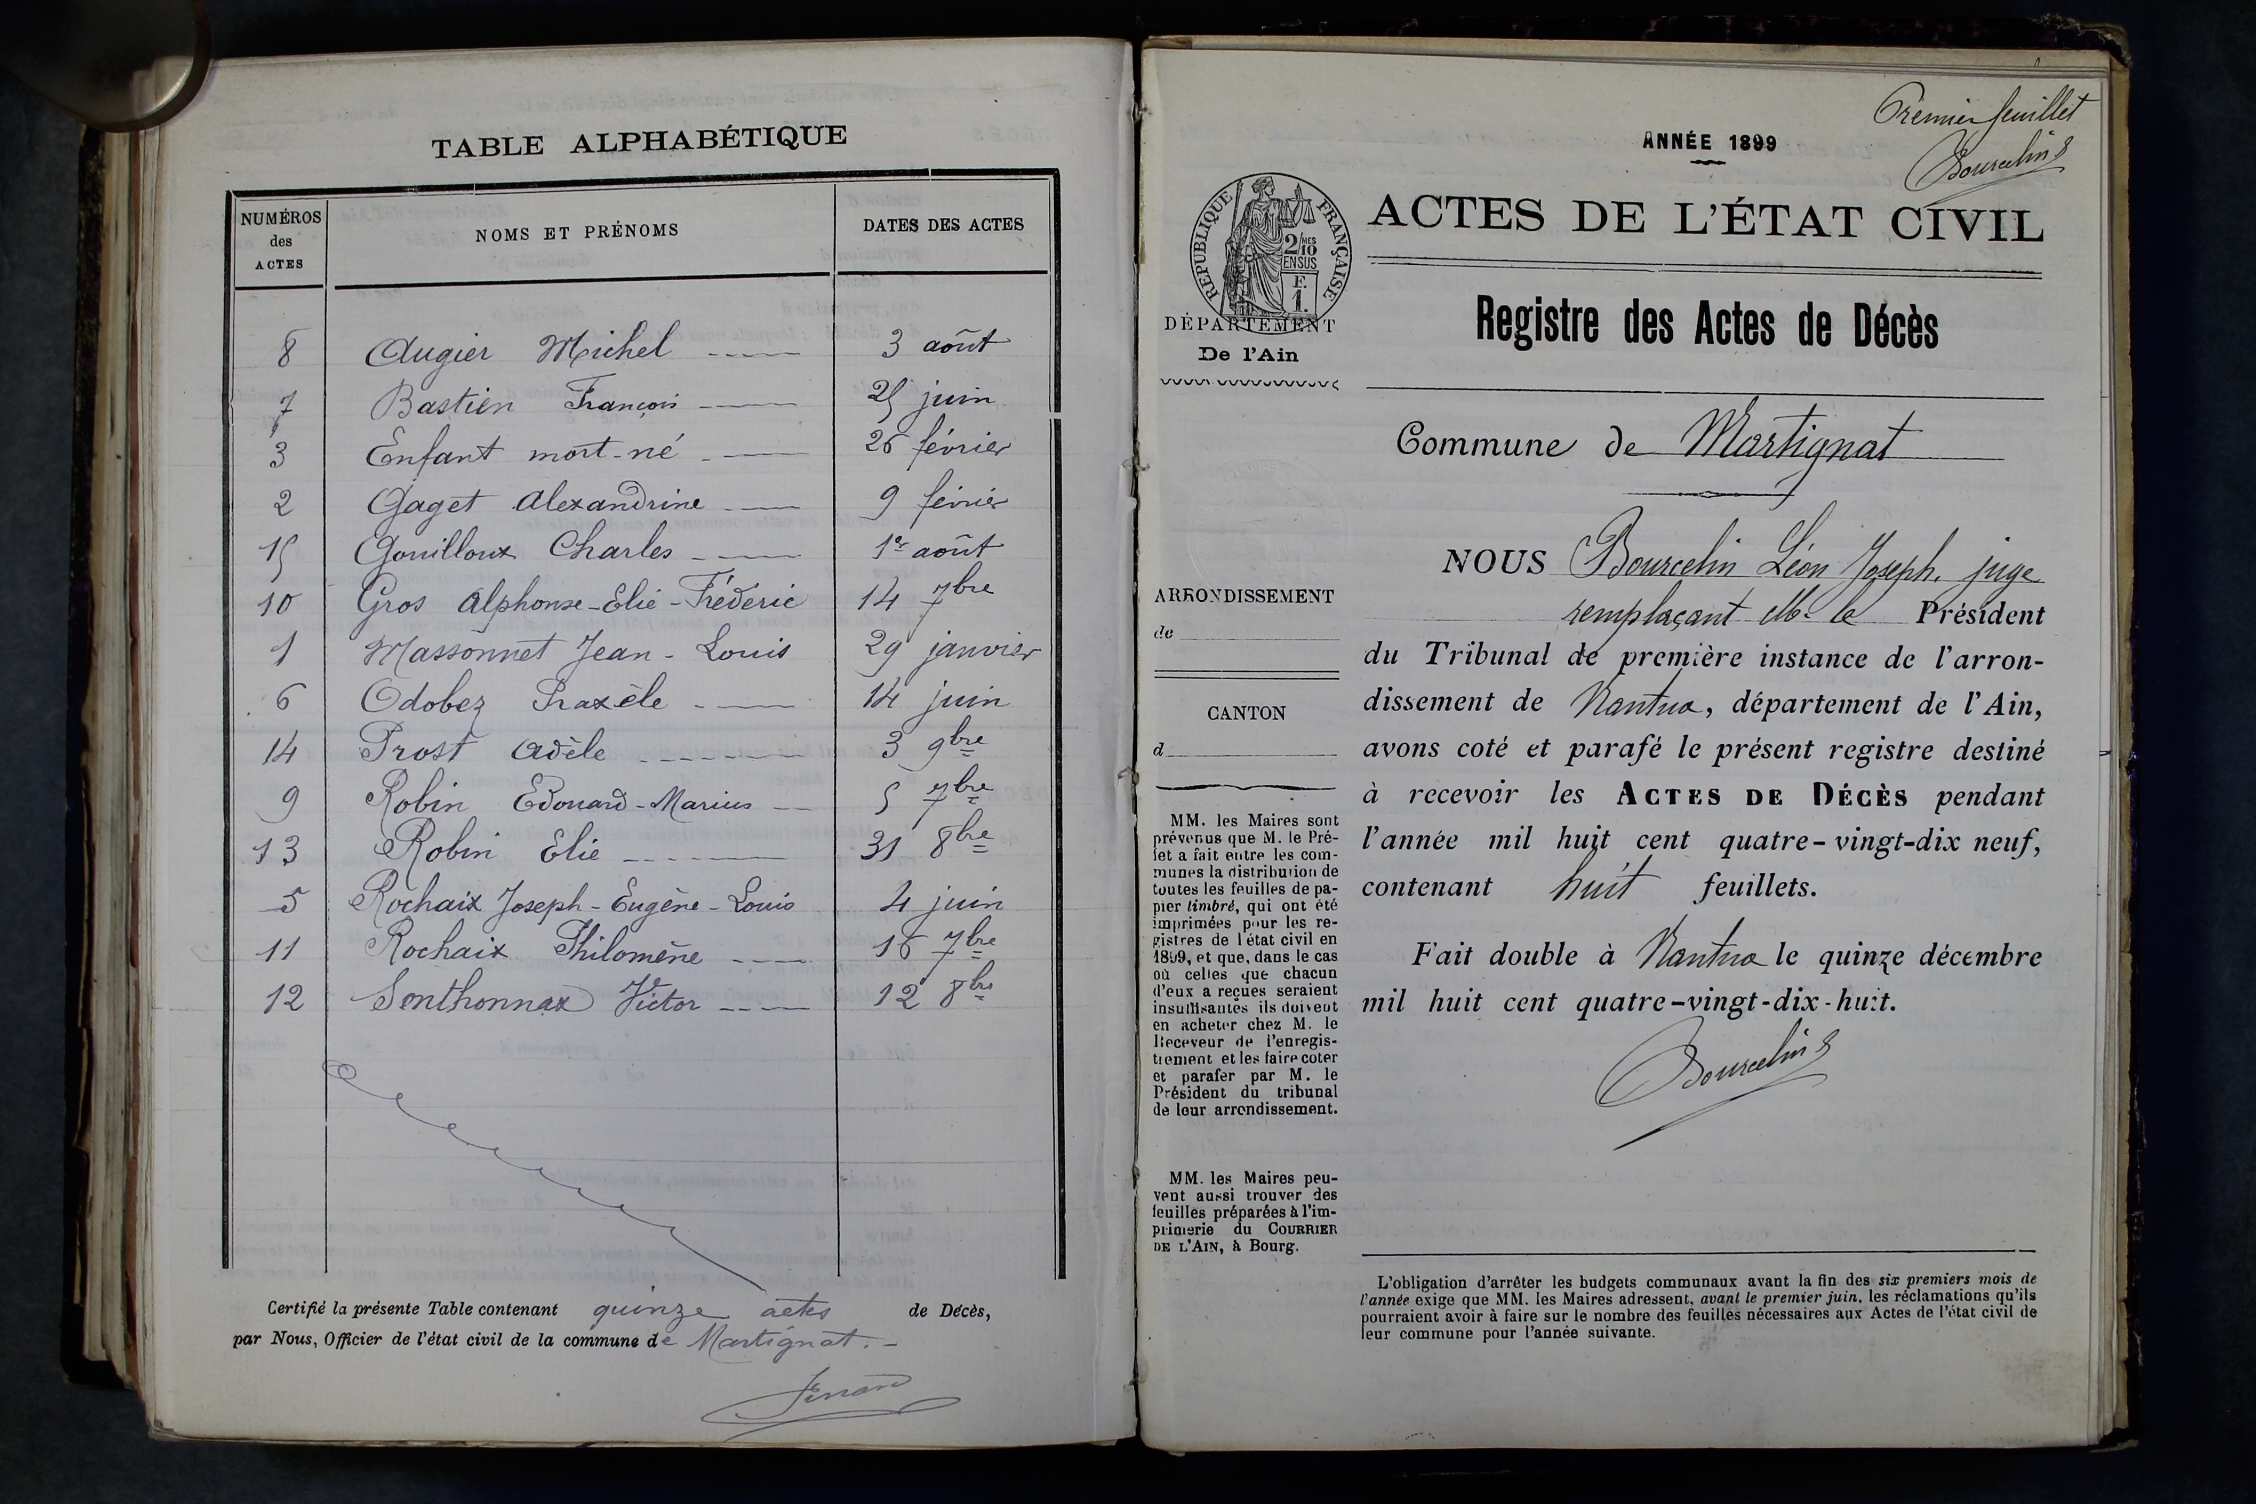 TABLE ALPHABÉTIQUE
NUMÉROS des ACTES NOMS ET PRÉNOMS DATES DES ACTES
8 Augier Michel 3 août
7 Bastien François 25 juin
3 Enfant mort-né 26 février
2 Gaget Alexandrine 9 février
15 Gouilloux Charles 1er août
10 Gros Alphonse-Elie-Fréderic 14 7bre
1 Massonnet Jean-Louis 29 janvier
6 Odobez Praxèle 14 juin
14 Prost Adèle 3 9bre
9 Robin Edouard-Marius 5 7bre
13 Robin Elie 31 8bre
5 Rochaix Joseph-Eugène-Louis 4 juin
11 Rochaix Philomène 16 7bre
12 Sonthonnax Victor 12 8bre
Certifié la présente Table contenant quinze actes de Décès,
par Nous, Officier de l'état civil de la commune de Martignat.
Premier feuillet
Bourcelin
ANNÉE 1899
ACTES DE L'ÉTAT CIVIL
RÉPUBLIQUE FRANÇAISE
2/10
EN SUS
F.
1.
DÉPARTEMENT
De l'Ain
Registre des Actes de Décès
Commune de Martignat
NOUS Bourcelin Léon Joseph, juge
remplaçant M. le Président
du Tribunal de première instance de l'arron-
dissement de Nantua, département de l'Ain,
avons coté et parafé le présent registre destiné
à recevoir les ACTES DE DÉCÈS pendant
l'année mil huit cent quatre-vingt-dix neuf,
contenant huit feuillets.
Fait double à Nantua le quinze décembre
mil huit cent quatre-vingt-dix-huit.
Bourcelin
ARRONDISSEMENT
de
CANTON
d
MM. les Maires sont
prévenus que M. le Pré-
fet a fait entre les com-
munes la distribution de
toutes les feuilles de pa-
pier timbré, qui ont été
imprimées pour les re-
gistres de l'état civil en
1899, et que, dans le cas
où celles que chacun
d'eux a reçues seraient
insuffisantes ils doivent
en acheter chez M. le
Receveur de l'enregis-
trement et les faire coter
et parafer par M. le
Président du tribunal
de leur arrondissement.
MM. les Maires peu-
vent aussi trouver des
feuilles préparées à l'im-
primerie du COURRIER
DE L'AIN, à Bourg.
L'obligation d'arrêter les budgets communaux avant la fin des six premiers mois de
l'année exige que MM. les Maires adressent, avant le premier juin, les réclamations qu'ils
pourraient avoir à faire sur le nombre des feuilles nécessaires aux Actes de l'état civil de
leur commune pour l'année suivante.